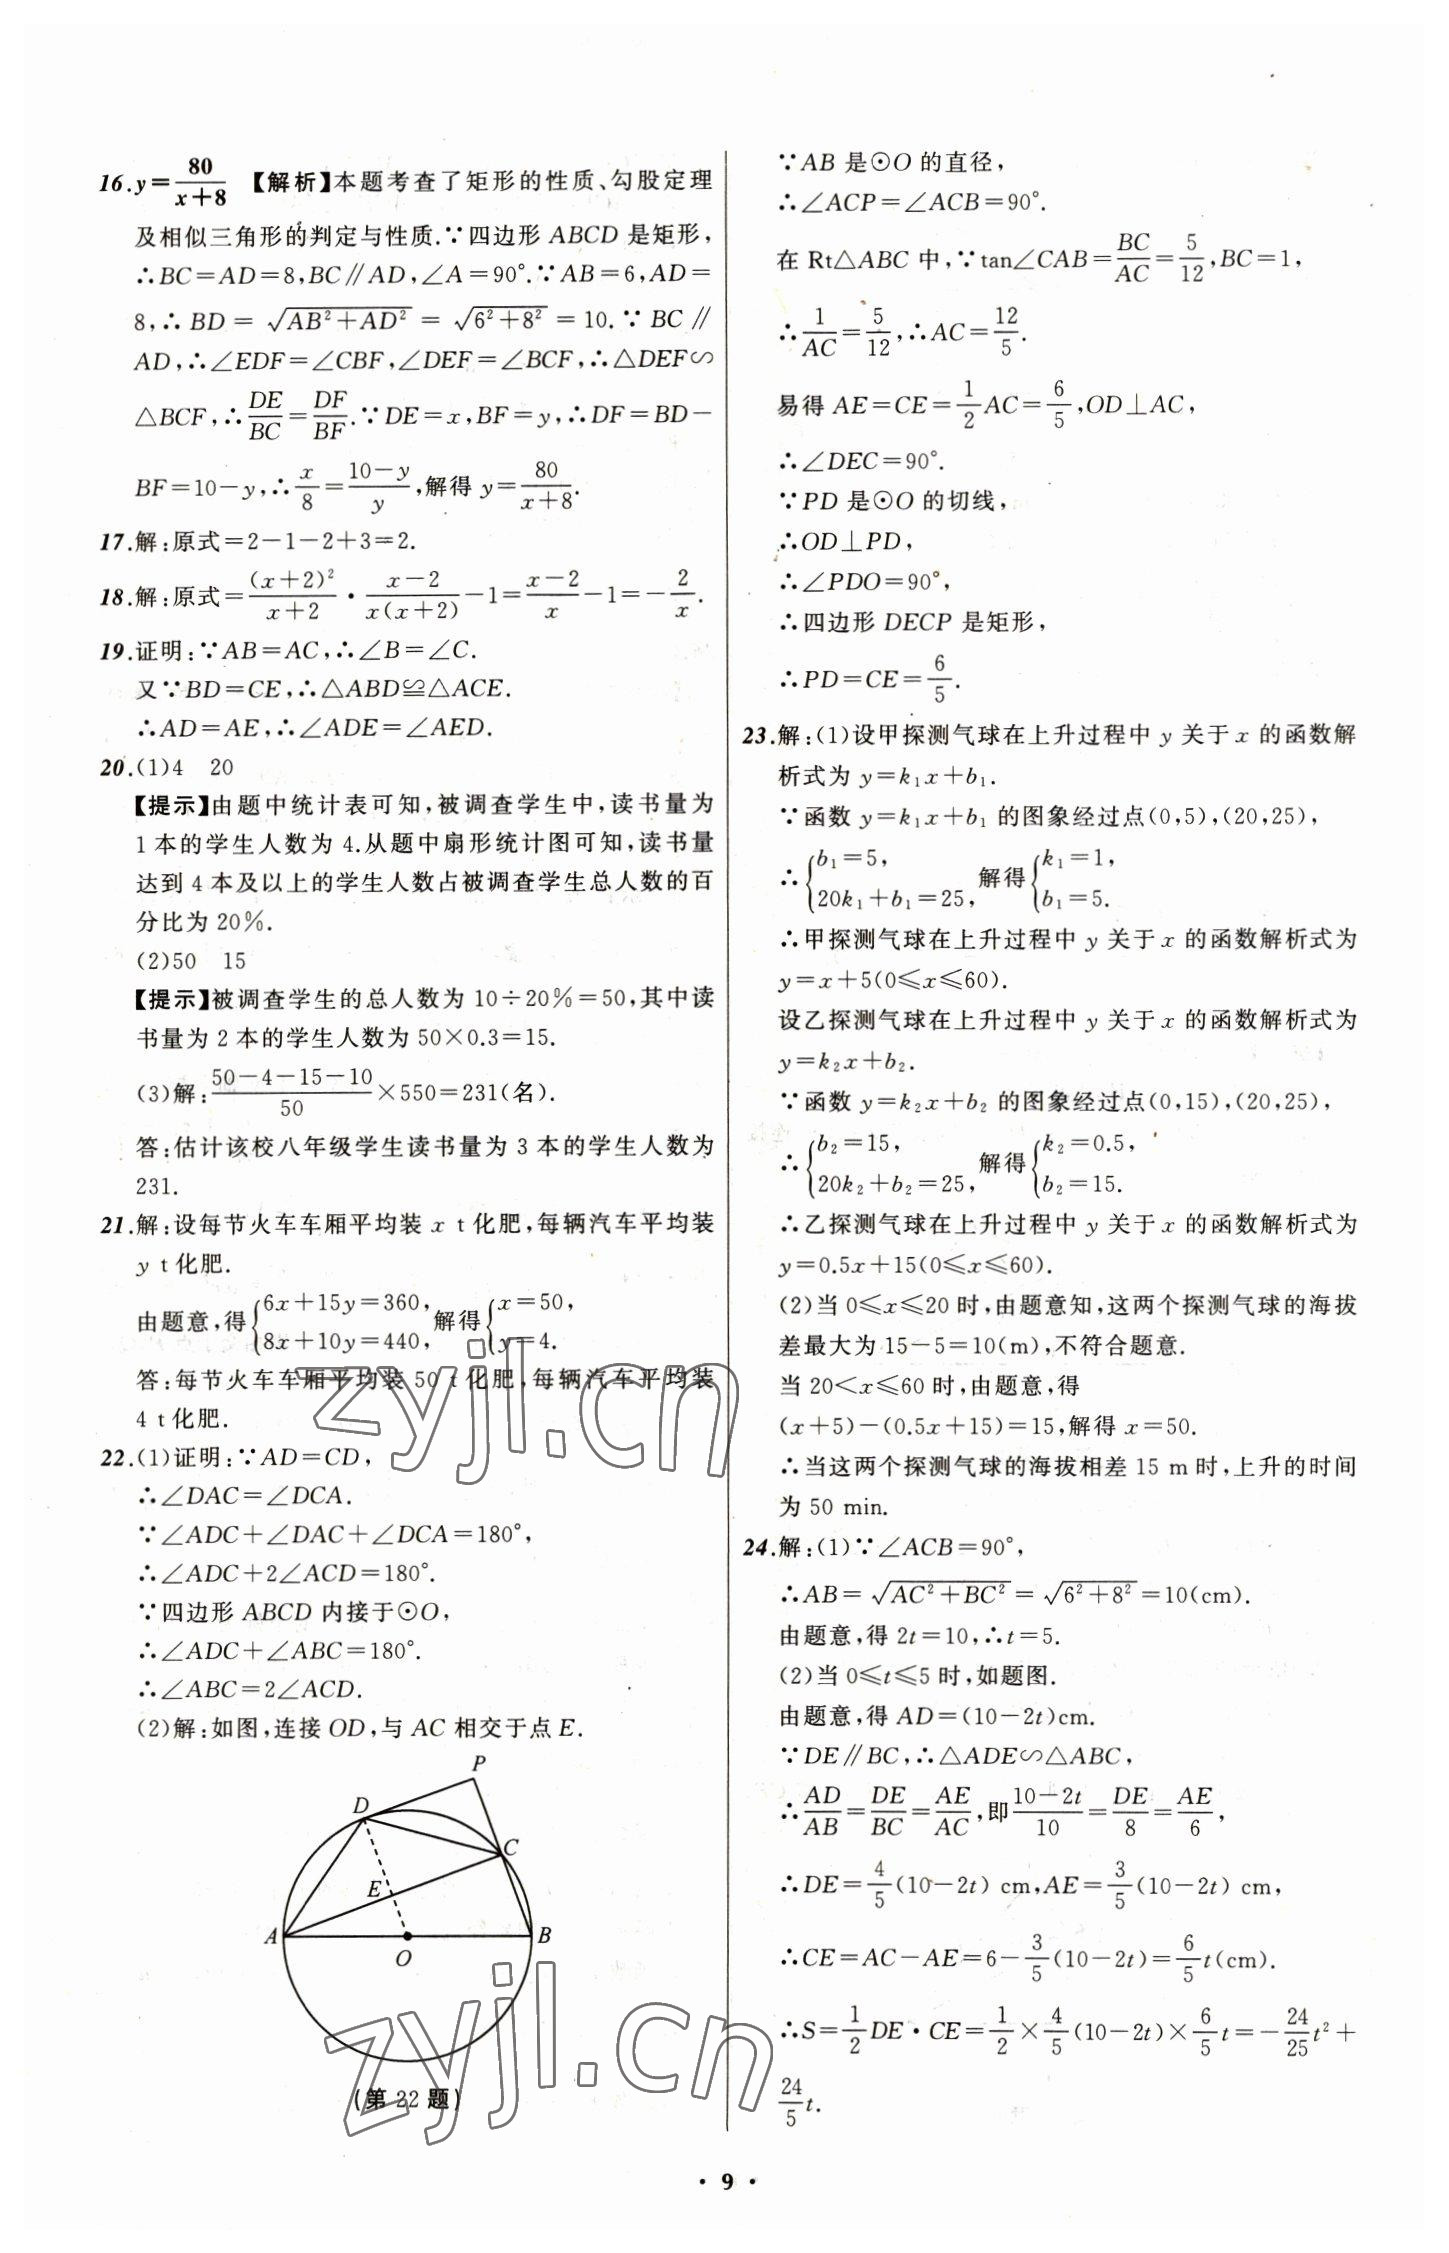 16.y=80/(x+8) 【解析】本题考查了矩形的性质、勾股定理
及相似三角形的判定与性质.∵四边形 ABCD 是矩形,
∴BC=AD=8,BC∥AD,∠A=90°.∵AB=6,AD=
8,∴BD=√(AB²+AD²)=√(6²+8²)=10.∵BC∥
AD,∴∠EDF=∠CBF,∠DEF=∠BCF,∴△DEF∽
△BCF,∴DE/BC=DF/BF.∵DE=x,BF=y,∴DF=BD-
BF=10-y,∴x/8=(10-y)/y,解得 y=80/(x+8).
17.解:原式=2-1-2+3=2.
18.解:原式=(x+2)²/(x+2)·(x-2)/(x(x+2))-1=(x-2)/x-1=-2/x.
19.证明:∵AB=AC,∴∠B=∠C.
又∵BD=CE,∴△ABD≌△ACE.
∴AD=AE,∴∠ADE=∠AED.
20.(1)4 20
【提示】由题中统计表可知,被调查学生中,读书量为
1本的学生人数为 4.从题中扇形统计图可知,读书量
达到 4 本及以上的学生人数占被调查学生总人数的百
分比为 20%.
(2)50 15
【提示】被调查学生的总人数为 10÷20%=50,其中读
书量为 2 本的学生人数为 50×0.3=15.
(3)解:(50-4-15-10)/50×550=231(名).
答:估计该校八年级学生读书量为 3 本的学生人数为
231.
21.解:设每节火车车厢平均装 x t化肥,每辆汽车平均装
y t化肥.
由题意,得{6x+15y=360, 8x+10y=440, 解得{x=50, y=4.
答:每节火车车厢平均装 50 t化肥,每辆汽车平均装
4 t化肥.
22.(1)证明:∵AD=CD,
∴∠DAC=∠DCA.
∵∠ADC+∠DAC+∠DCA=180°,
∴∠ADC+2∠ACD=180°.
∵四边形 ABCD 内接于⊙O,
∴∠ADC+∠ABC=180°.
∴∠ABC=2∠ACD.
(2)解:如图,连接 OD,与 AC 相交于点 E.
P
D
C
E
A
B
O
(第 22 题)
∵AB 是⊙O 的直径,
∴∠ACP=∠ACB=90°.
在 Rt△ABC 中,∵tan∠CAB=BC/AC=5/12,BC=1,
∴1/AC=5/12,∴AC=12/5.
易得 AE=CE=1/2AC=6/5,OD⊥AC,
∴∠DEC=90°.
∵PD 是⊙O 的切线,
∴OD⊥PD,
∴∠PDO=90°,
∴四边形 DECP 是矩形,
∴PD=CE=6/5.
23.解:(1)设甲探测气球在上升过程中 y 关于 x 的函数解
析式为 y=k₁x+b₁.
∵函数 y=k₁x+b₁ 的图象经过点(0,5),(20,25),
∴{b₁=5, 20k₁+b₁=25, 解得{k₁=1, b₁=5.
∴甲探测气球在上升过程中 y 关于 x 的函数解析式为
y=x+5(0⩽x⩽60).
设乙探测气球在上升过程中 y 关于 x 的函数解析式为
y=k₂x+b₂.
∵函数 y=k₂x+b₂ 的图象经过点(0,15),(20,25),
∴{b₂=15, 20k₂+b₂=25, 解得{k₂=0.5, b₂=15.
∴乙探测气球在上升过程中 y 关于 x 的函数解析式为
y=0.5x+15(0⩽x⩽60).
(2)当 0⩽x⩽20 时,由题意知,这两个探测气球的海拔
差最大为 15-5=10(m),不符合题意.
当 20<x⩽60 时,由题意,得
(x+5)-(0.5x+15)=15,解得 x=50.
∴当这两个探测气球的海拔相差 15 m时,上升的时间
为 50 min.
24.解:(1)∵∠ACB=90°,
∴AB=√(AC²+BC²)=√(6²+8²)=10(cm).
由题意,得 2t=10,∴t=5.
(2)当 0⩽t⩽5 时,如题图.
由题意,得 AD=(10-2t)cm.
∵DE∥BC,∴△ADE∽△ABC,
∴AD/AB=DE/BC=AE/AC,即(10-2t)/10=DE/8=AE/6,
∴DE=4/5(10-2t) cm,AE=3/5(10-2t) cm,
∴CE=AC-AE=6-3/5(10-2t)=6/5t(cm).
∴S=1/2DE·CE=1/2×4/5(10-2t)×6/5t=-24/25t²+
24/5t.
· 9 ·
zyjl.cn
zyjl.cn